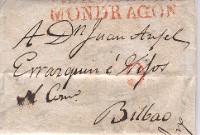 MONDRAGON
A Dn. Juan Angel
Errarquin é Hijos
Bilbao